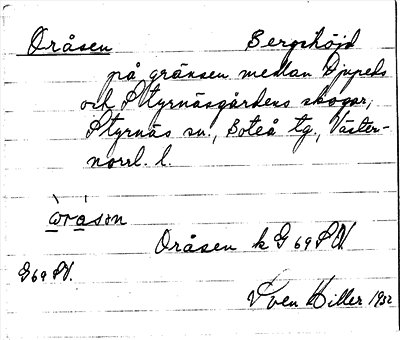 Oråsen Bergshöjd
på gränsen mellan Djupeds
och Styrnäsgårdens skogar,
Styrnäs sn., Boteå tg., Väster-
norrl. l.
òrasòn
Oråsen k G 69 SV.
G 69 SV.
Sven Hiller 1932